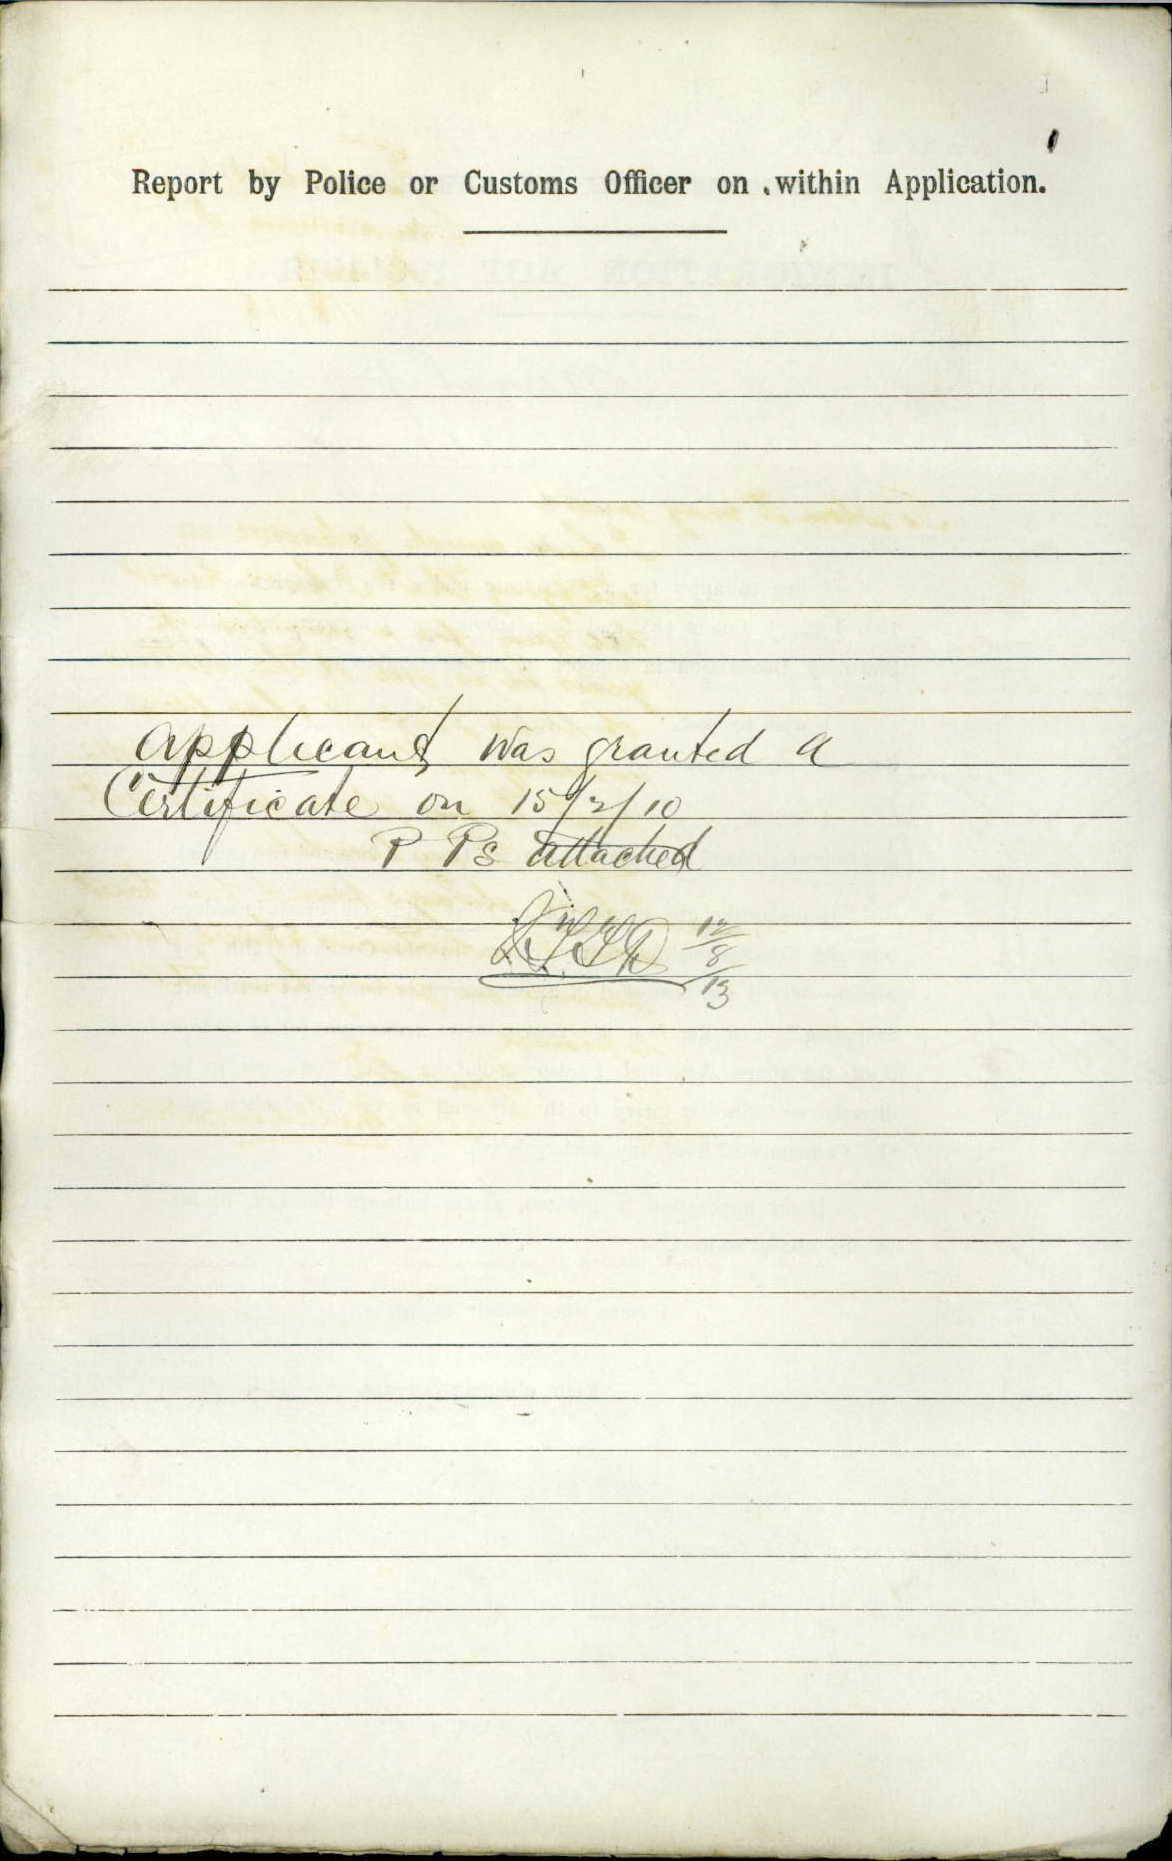 Report by Police or Customs Officer on within Application.
Applicant was granted a
Certificate on 15/2/10
P Ps attached
12/8/13